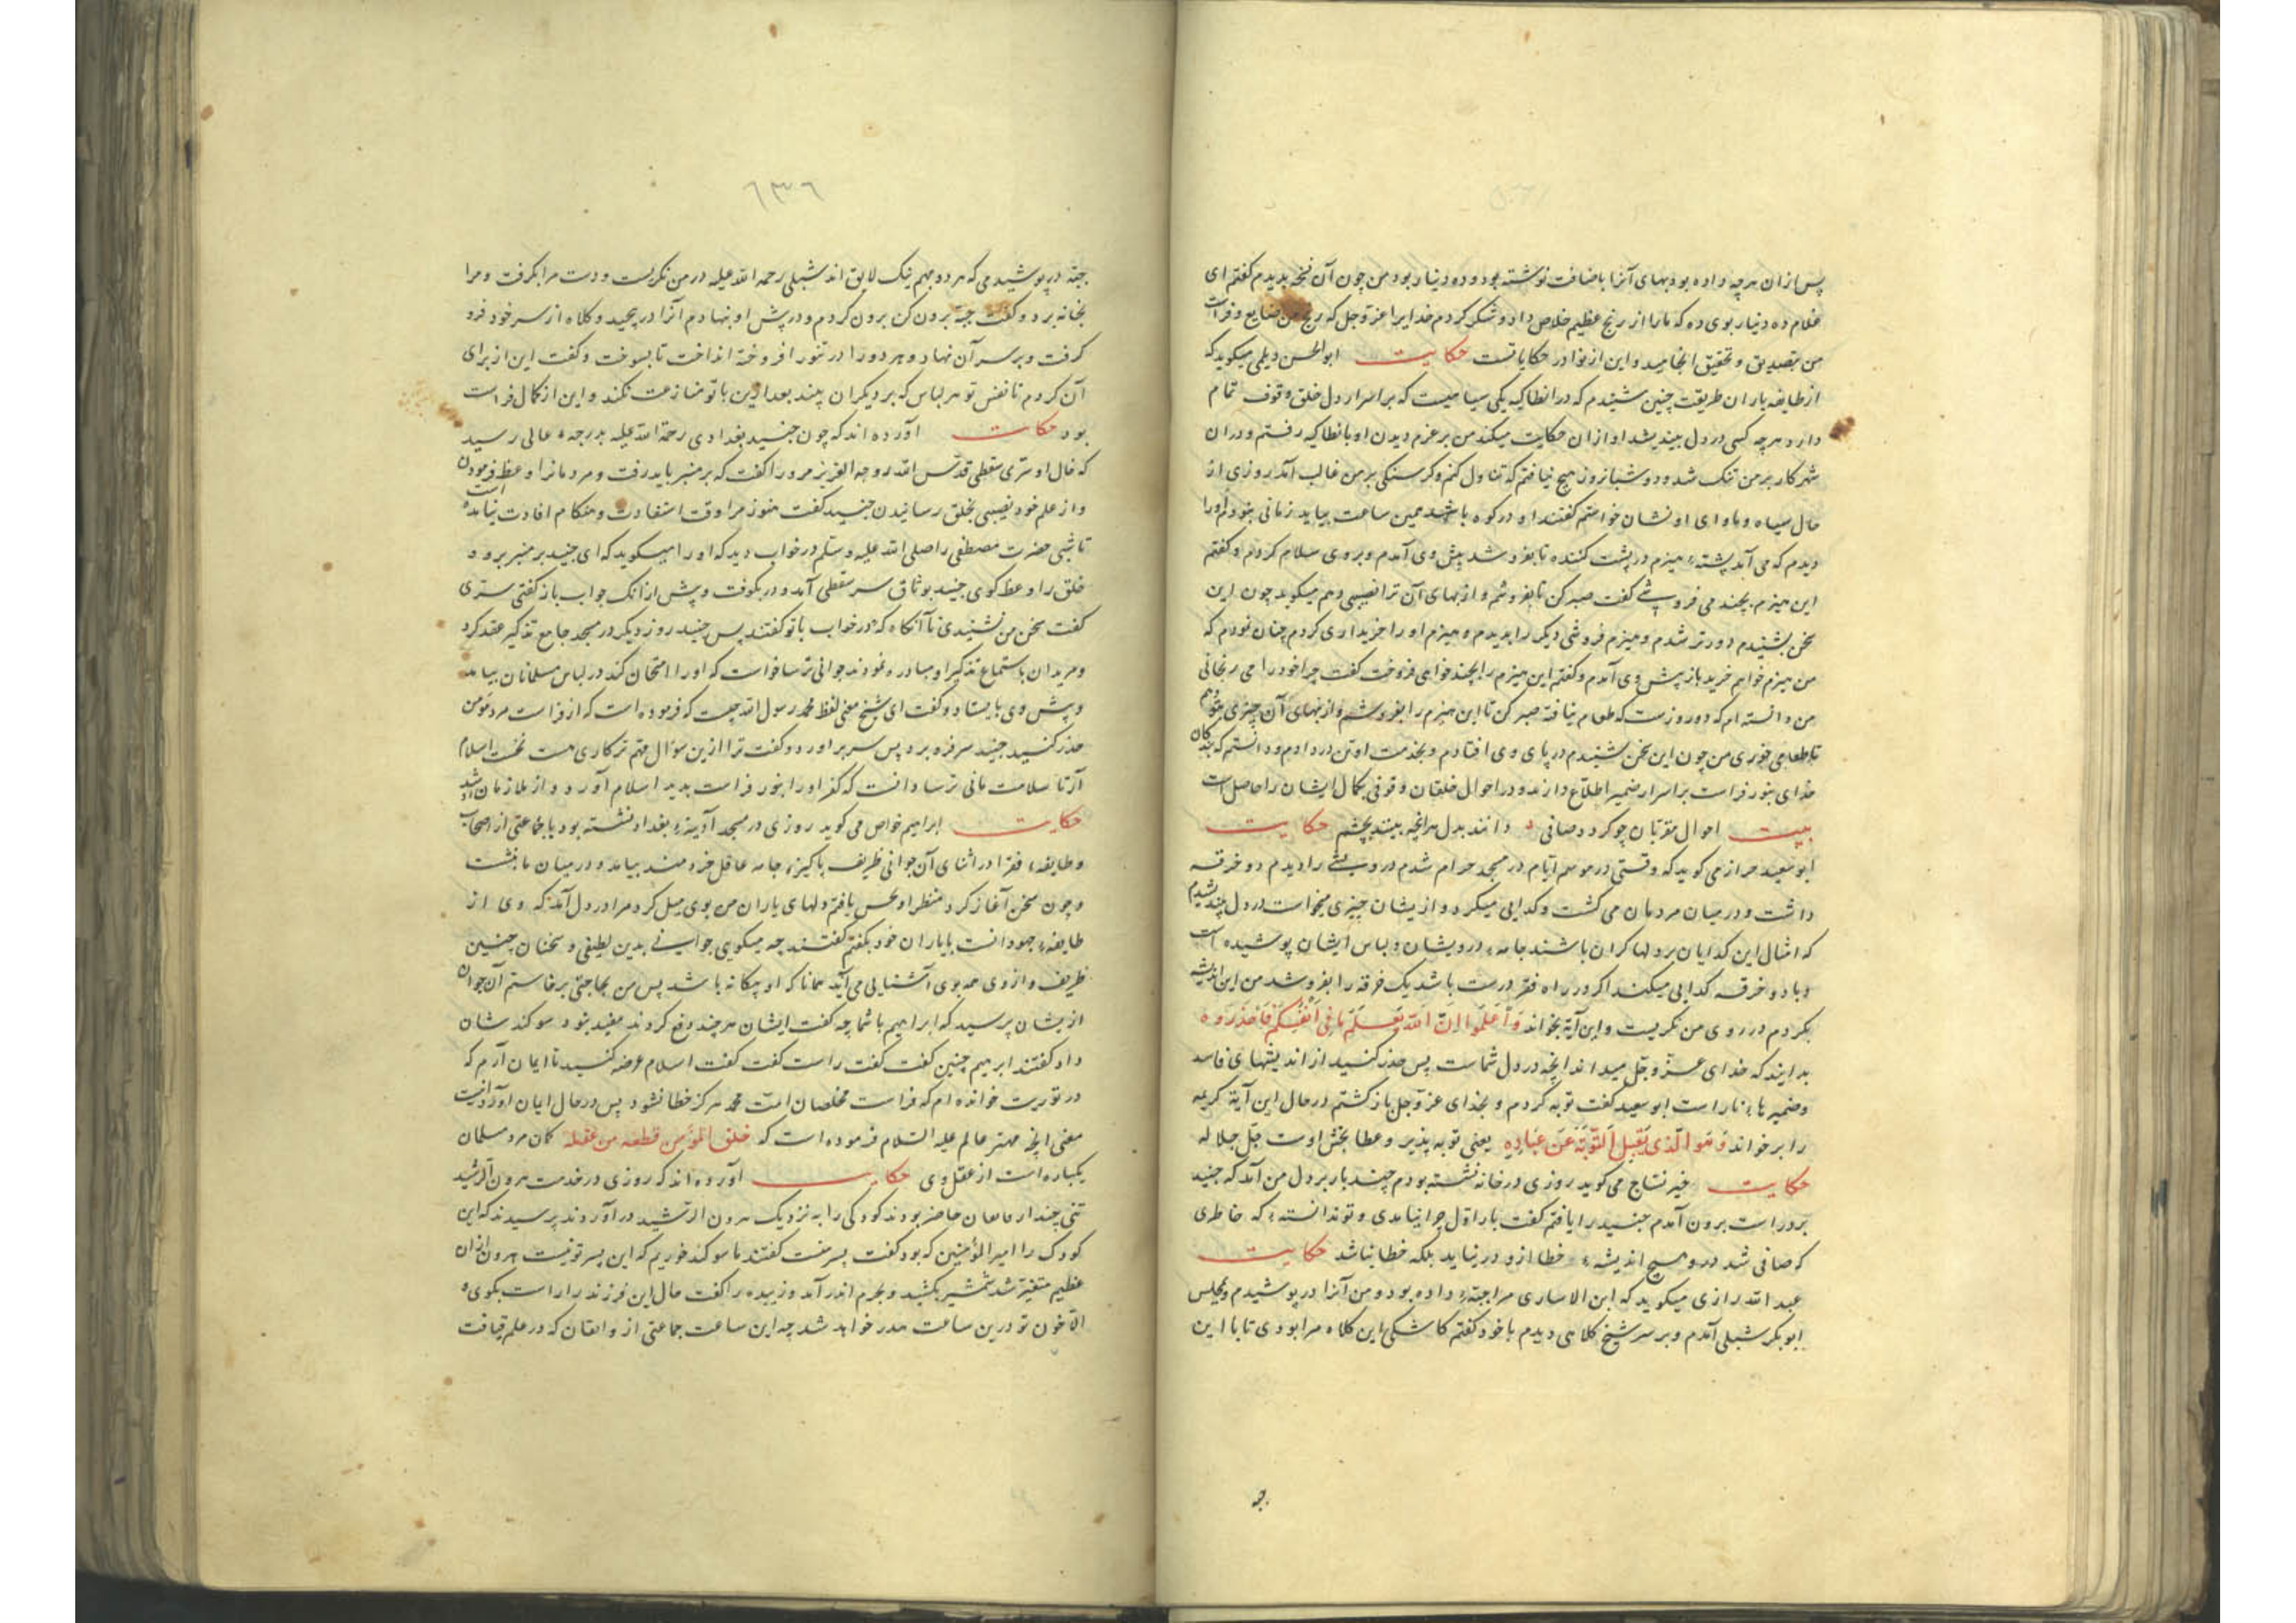 پس از ان هرچه داده بود بهای آنرا باضافت نوشته بود و ده دینار بود من چون آن نسخه بدیدم گفتم ای
غلام ده دینار بوی ده که مارا از رنج عظیم خلاص داد و شکر کردم خدایرا عزوجل که رنج من ضایع و فراست
من بتصدیق و تحقیق انجامید و این از نوادر حکایاتست حکایت ابوالحسن دیلمی میگوید که
از طایفه یاران طریقت چنین شنیدم که در انطاکیه یکی سیاهیست که بر اسرار دل خلق وقوف تمام
دارد هرچه کسی در دل بیندیشد او ازان حکایت میکند من بر عزم دیدن او بانطاکیه رفتم و دران
شهر کار بر من تنک شد و دو شبانروز هیچ نیافتم که تناول کنم و کرسنکی بر من غالب آمد روزی از
حال سیاه و ماوای او نشان خواستم گفتند او در کوه باشد همین ساعت بیاید زمانی بنود که اورا
دیدم که می آمد پشتهٔ هیزم در پشت کننده تا بفروشد پیش وی آمدم و بروی سلام کردم و گفتم
این هیزم بچند می فروشی گفت صبر کن تا بفروشم و از بهای آن ترا نصیبی دهم میکوید چون این
سخن بشنیدم دورتر شدم و هیزم فروشی دیکر را بدیدم و هیزم او را خریداری کردم چنان نمودم که
من هیزم خواهم خرید باز پیش وی آمدم و گفتم این هیزم را بچند خواهی فروخت گفت چرا خود را می رنجانی
من دانسته ام که دو روزست که طعام نیافتهٔ صبر کن تا این هیزم را بفروشم و از بهای آن چیزی بتو دهم
تا طعامی خوری من چون این سخن شنیدم در پای وی افتادم و بخدمت او تن در دادم و دانستم که بندکان
خدای بنور فراست بر اسرار ضمیر اطلاع دارند و در احوال خلقان وقوفی بکمال ایشان را حاصل است
بیت احوال مقربان چو کردد صافی دانند بدل هرانچه بینند بچشم حکایت
ابو سعید خراز می کوید که وقتی در موسم ایام در مسجد حرام شدم درویشی را دیدم دو خرقه
داشت و در میان مردمان می کشت و کدایی میکرد و از یشان چیزی میخواست در دل اندیشیدم
که امثال این کدایان بر دلها کران باشند جامهٔ درویشان و لباس ایشان پوشیده است
و با دو خرقه کدایی میکند اکر در راه فقر درست باشد یک خرقه را بفروشد من این اندیشه
بکردم در روی من نکریست و این آیة بخواند وَاعْلَمُوا انَّ اللهَ یَعْلَمُ مَا فِی اَنْفُسِکُمْ فَاحْذَرُوهُ
بدانید که خدای عزّ و جلّ میداند انچه در دل شماست پس حذر کنید از اندیشهای فاسد
و ضمیرهای ناراست ابو سعید گفت توبه کردم و بخدای عز و جل باز کشتم در حال این آیة کریمه
را بر خواند وَهُوَ الَّذی یَقْبَلُ التَّوْبَةَ عَنْ عِبَادِهِ یعنی توبه پذیر و عطا بخش اوست جلّ جلاله
حکایت خیر نساج می کوید روزی در خانه نشسته بودم چند بار بر دل من آمد که جنید
بر دراست برون آمدم جنید را یافتم کفت بار اوّل چرا نیامدی و تو ندانستهٔ که خاطری
که صافی شد درو هیچ اندیشهٔ خطا از و در نیاید بلکه خطا نباشد حکایت
عبد الله رازی میکوید که ابن الانباری مرا جبّهٔ داده بود و من آنرا در پوشیدم و بمجلس
ابو بکر شبلی آمدم و بر سر شیخ کلاهی دیدم با خود گفتم کاشکی این کلاه مرا بودی تا با این
جبه
٦٣٦
جبّه در پوشیدمی که هر دو بهم نیک لایق اند شبلی رحمه الله علیه در من نکریست و دست مرا بکرفت و مرا
بخانه برد و گفت جبّه برون کن برون کردم و در پیش او بنهادم آنرا در پیچید و کلاه از سر خود فرو
کرفت و بر سر آن نهاد و هر دو را در تنور افروخته انداخت تا بسوخت و گفت این از برای
آن کردم تا نفس تو هر لباس که بر دیکران بیند بعد ازین با تو منازعت نکند و این از کمال فراست
بود حکایت آورده اند که چون جنید بغدادی رحمة الله علیه بدرجهٔ عالی رسید
که خال او سَری سقطی قدّس الله روحه العزیز مرورا گفت که بر منبر باید رفت و مردمانرا وعظ فرمودن
و از علم خود نصیبی بخلق رسانیدن جنید گفت هنوز مرا وقت استفادت و هنکام افادت نیامده است
تا شبی حضرت مصطفی را صلی الله علیه و سلم در خواب دید که او را میکوید که ای جنید بر منبر برو و
خلق را وعظ کوی جنید بوثاق سر سقطی آمد و در بکوفت و پیش از آنک جواب باز گفتی سَری
گفت سخن من نشنیدی تا آنکاه که در خواب با تو گفتند پس جنید روز دیکر در مسجد جامع تذکیر عقد کرد
و مریدان باستماع تذکیر او مبادره نمودند جوانی ترسا خواست که اورا امتحان کند در لباس مسلمانان بیامد
و پیش وی بایستاد و گفت ای شیخ معنی لفظ محمد رسول الله چیست که فرموده است که از فراست مرد مؤمن
حذر کنید جنید سر فرو برد پس سر بر آورد و گفت ترا ازین سؤال مهم تر کاری هست نخست اسلام
آر تا سلامت مانی ترسا دانست که کفر او را بنور فراست بدید اسلام آورد و از ملازمان او شد
حکایت ابراهیم خواص می کوید روزی در مسجد آدینهٔ بغداد نشسته بود با جماعتی از اصحاب
و طایفهٔ فقرا در اثنای آن جوانی ظریف پاکیزه جامه عاقل خردمند بیامد و در میان ما بنشست
و چون سخن آغاز کرد منظر او یافتم دلهای یاران من بوی میل کرد مرا در دل آمد که وی از
طایفهٔ جهودانست با یاران خود بگفتم گفتند چه میکویی جوانی بدین لطیفی و سخنان چنین
ظریف و از وی همه بوی آشنایی می آید همانا که او بیکانه باشد پس من بحاجتی برخاستم آن جوان
از یشان پرسید که ابراهیم با شما چه گفت ایشان هرچند دفع کردند مفید بنود سوکند شان
داد گفتند ابرهیم چنین گفت گفت راست گفت گفت اسلام عرضه کنید تا ایمان آرم که
در توریت خوانده ام که فراست مخلصان امت محمد هرکز خطا نشود پس در حال ایمان آورد
معنی انچ مهتر عالم علیه السّلام فرموده است که خلق المؤمن قطعه من عقله کمان مرد مسلمان
یکپاره است از عقل وی حکایت آورده اند که روزی در خدمت هرون الرشید
تنی چند از حاضر بودند کودکی را به نزدیک هرون الرشید در آوردند پرسیدند که این
کودک را امیر المؤمنین که بود گفت پسر منست گفتند ما سوکند خوریم که این پسر تو نیست هرون ازان
عظیم متغیّر شد شمشیر بکشید و بحرم اندر آمد و زبیده را گفت حال این فرزند را راست بکوی و
الّا خون تو درین ساعت هدر خواهد شد چه این ساعت جماعتی از واقفان که در علم قیافت